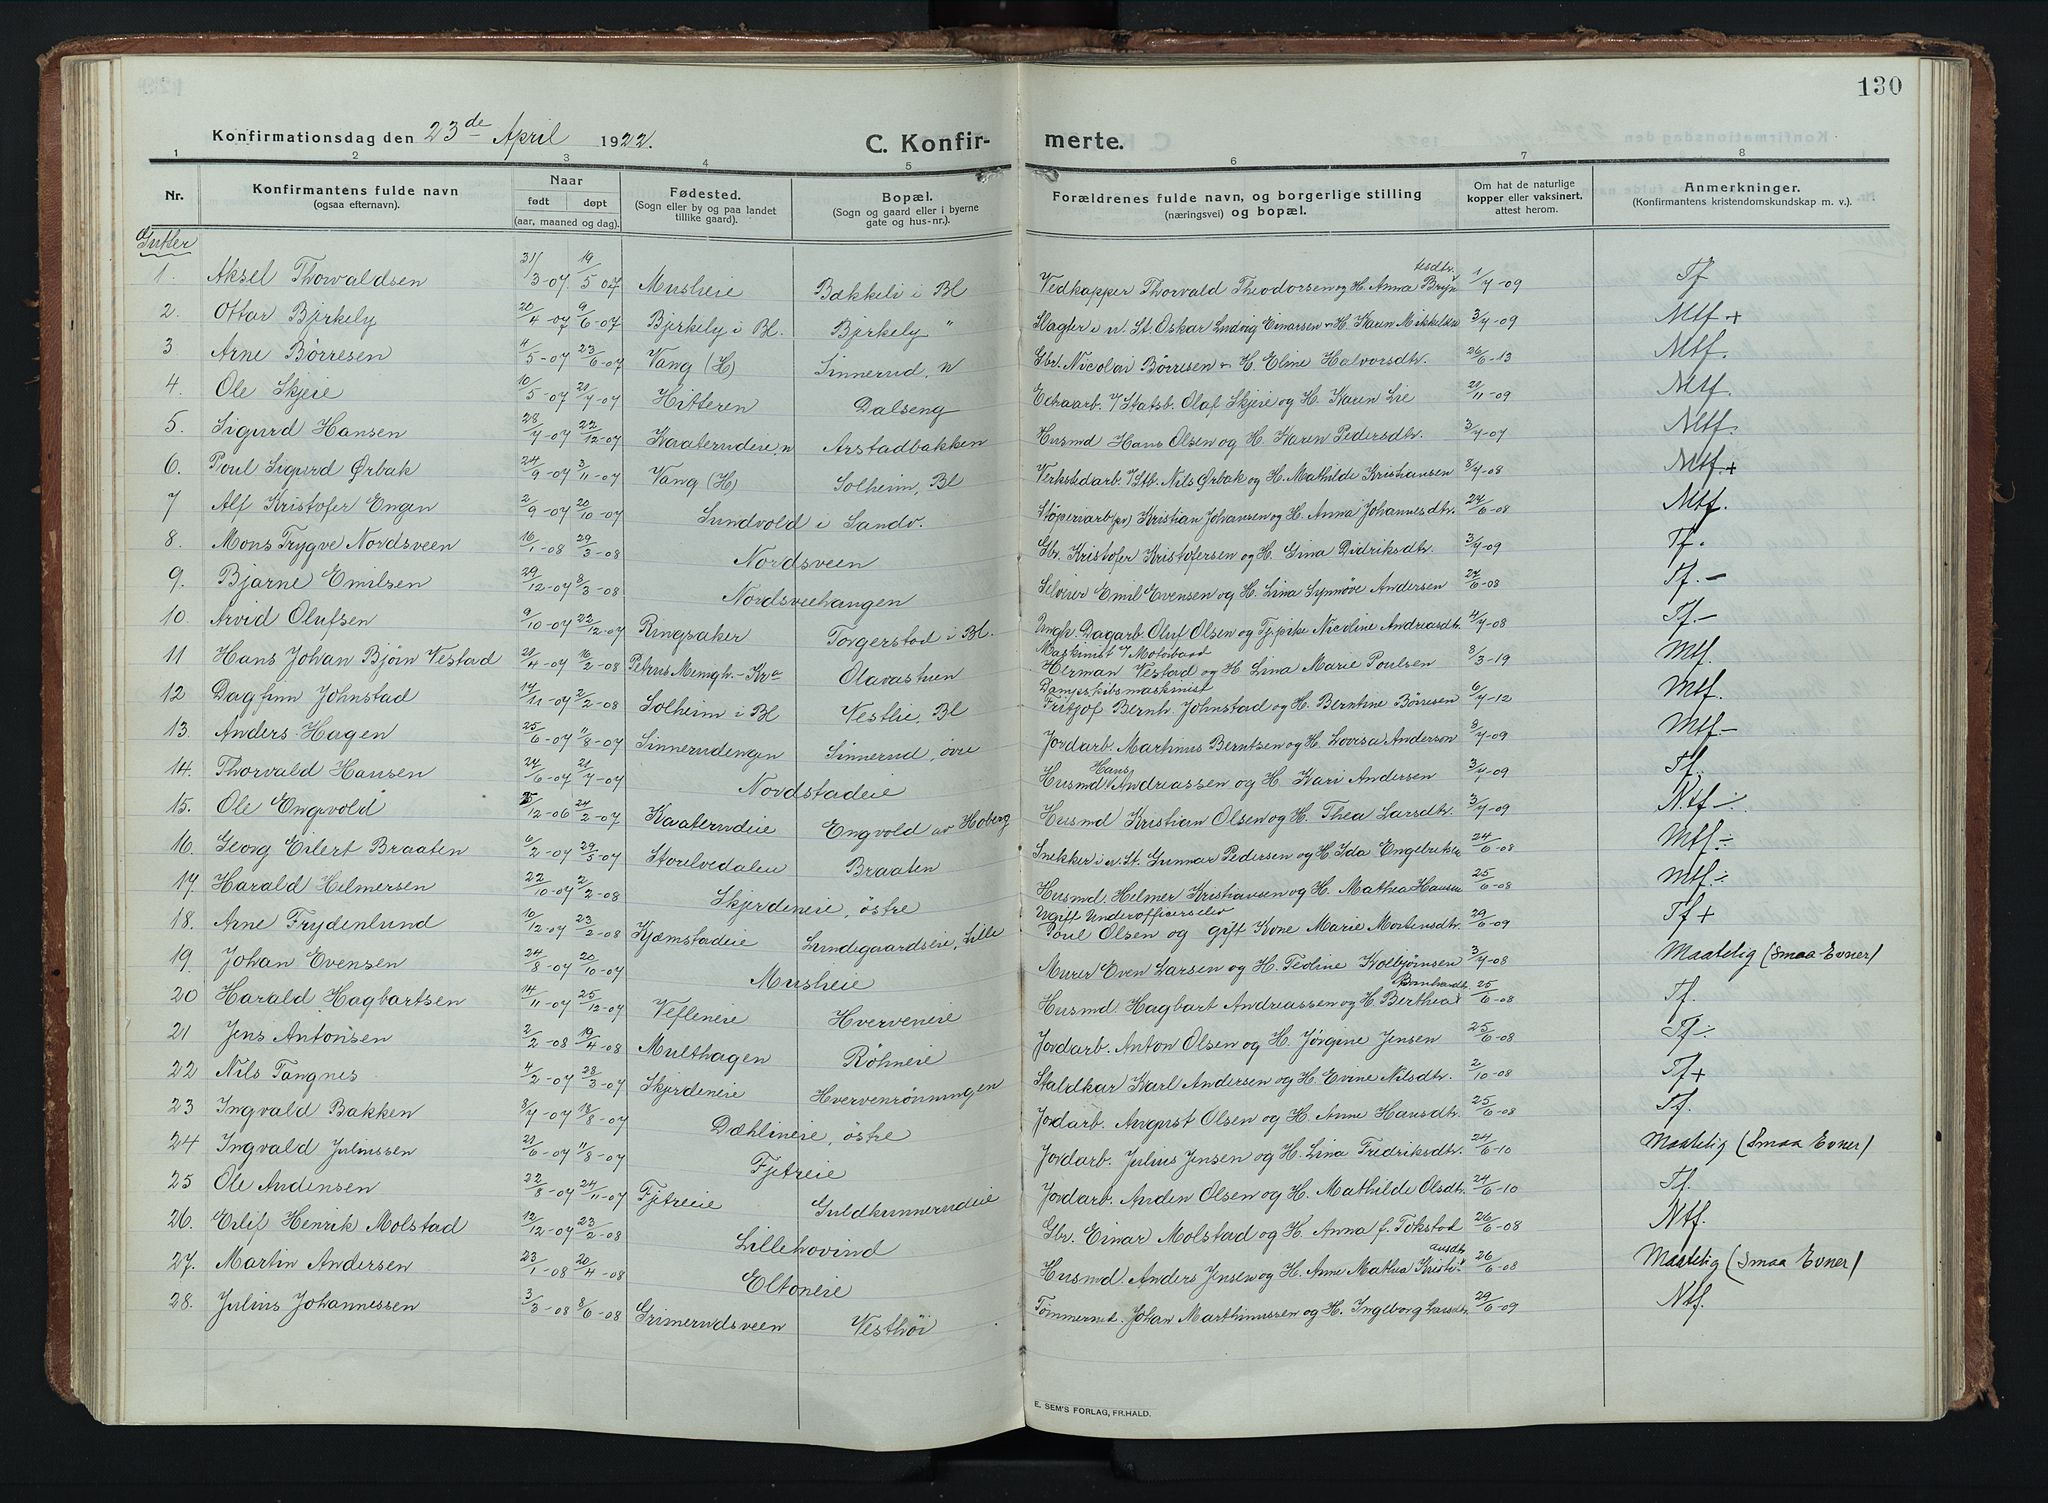 130
Konfirmationsdag den 23de April 1922.
C. Konfir- merte.
1 2 3 4 5 6 7 8
Nr. Konfirmantens fulde navn (ogsaa efternavn). Naar født døpt (aar, maaned og dag). Fødested. (Sogn eller by og paa landet tillike gaard). Bopæl. (Sogn og gaard eller i byerne gate og hus-nr.). Forældrenes fulde navn, og borgerlige stilling (næringsvei) og bopæl. Om hat de naturlige kopper eller vaksinert, attest herom. Anmerkninger. (Konfirmantens kristendomskundskap m. v.).
Gutter
1. Aksel Thorvaldsen 31/3-07 19/5 07 Musheie Bækkeli i Bl Vedkapper Thorvald Theodorsen og H. Anna Bryntesdtr. 1/7-09 Tf
2. Ottar Bjerkely 20/4-07 9/6-07 Bjerkely i Bl. Bjerkely " Slagter i u. St. Oskar Ludvig Einarsen & H. Karen Mikkelsen 3/7-09 Mtf +
3 Arne Børresen 4/5-07 23/6-07 Vang (H) Sinnerud, n Gbr. Nicolai Børresen & H. Eline Halvorsdtr. 26/6-13 Mtf.
4. Ole Skjeie 10/5-07 21/7-07 Hitteren Dalseng Extraarb. v/ Statsb. Olaf Skjeie og H. Karen Lie 21/11-09 Mtf
5. Sigurd Hansen 28/7-07 22/12-07 Kaaterudeie, n Arstadbakken Husmd Hans Olsen og H. Karen Pedersdtr. 3/7-07 Mtf
6. Poul Sigurd Ørbak 24/9-07 3/11-07 Vang (H) Solheim, Bl Verkstedarb. v/Stb. Nils Ørbak og H. Mathilde Kristiansen 8/7-08 Mtf +
7 Alf Kristofer Engen 2/9-07 20/10-07 Sundvold i Sandv. Støperiarb (pv) Kristian Johansen og H. Anna Johannesdtr. 27/6-08 Mtf.
8. Mons Trygve Nordsveen 16/1-08 29/3-08 Nordsveen Gbr. Kristofer Kristofersen og H. Gina Didriksdtr. 3/7-09 Tf.
9. Bjarne Emilsen 29/12-07 8/3-08 Nordsveehangen Selveier Emil Evensen og H. Lina Synnøve Andersen 27/6-08 Tf. -
10. Arvid Olufsen 9/10-07 22/12-07 Ringsaker Torgerstad i Bl. Ungk. Dagarb. Oluf Olsen og Tj.pike Nicoline Andreasdtr. 4/7-08 Tf. -
11 Hans Johan Bjørn Vestad 21/4-07 16/2-08 Petrus Mengh. - Kra Olavastuen Maskinist v/ Motorbaad Herman Vestad og H. Lina Marie Poulsen 3/3-19 Mtf.
12 Dagfinn Johnstad 14/11-07 2/2-08 Solheim i Bl Vestlie, Bl Dampskibsmaskinist Fritjof Bernh. Johnstad og H. Berntine Børresen 6/7-12 Mtf.
13. Anders Hagen 25/6-07 11/8-07 Sinnerudengen Sinnerud, øvre Jordarb. Martinus Berntsen og H. Lovise Anderson 3/7-09 Mtf -
14. Thorvald Hansen 24/6-07 21/7-07 Nordstadeie Husmd Hans Andreassen og H. Kari Andersen 3/7-09 Tf.
15. Ole Engvold /12-06 24/2-07 Kaaterudeie Engvold av Hoberg Husmd Kristian Olsen og H. Thea Larsdtr. 3/7-09 Ntf ÷
16. Georg Eilert Braaten 6/2-07 29/5-07 Storelvedalen Braaten Snekker i u. St. Gunnar Pedersen og H. Ida Engebretsen 24/6-08 Mtf ÷
17. Harald Helmersen 22/10-07 2/2-08 Skjerdeneie, østre Husmd. Helmer Kristiansen og H. Mathea Hansen 25/6-08 Mtf ÷
18. Arne Frydenlund 10/12-07 23/2-08 Kjæmstadeie Lundegaardseie, Lille Ugift Underofficerselev Poul Olsen og gift Kone Marie Mortensdtr. 29/6-09 Tf +
19. Johan Evensen 24/8-07 20/10-07 Musheie Murer Even Larsen og H. Teoline Kolbjørnsen 3/7-08 Maatelig (Smaa Evner)
20 Harald Hagbartsen 14/11-07 25/12-07 Vefleneie Hverveneie Husmd. Hagbart Andreassen og H. Berthea Bernhardtr. 25/6-08 Tf.
21 Jens Antonsen 2/2-08 19/4-08 Multhagen Röhneie Jordarb. Anton Olsen og H. Jørgine Jensen 25/6-08 Tf ÷
22 Nils Tangnes 4/2-07 28/3-07 Skjerdeneie Hvervenrönningen Staldkar Karl Andersen og H. Evine Nilsdtr. 2/10-08 Tf +
23 Ingvald Bakken 8/7-07 18/8-07 Dæhlineie, østre Jordarb. August Olsen og H. Anne Hansdtr. 25/6-08 Tf.
24 Ingvald Juliussen 21/6-07 11/8-07 Fjetreie Jordarb. Julius Jensen og H. Lina Fredriksdtr. 24/6-10 Maatelig (Smaa Evner)
25 Ole Andensen 22/8-07 24/11-07 Fjetreie Guldkunnerudeie Jordarb. Anden Olsen og H. Mathilde Olsdtr. 24/6-10 Tf.
26. Erlif Henrik Molstad 12/12-07 23/2-08 Lillehovind Gbr. Einar Molstad og H. Anna f. Tokstad 26/6-08 Ntf.
27. Martin Andersen 23/1-08 20/4-08 Eltoneie Husmd. Anders Jensen og H. Anne Mathea Kristiansdtr 26/6-08 Maatelig (Smaa Evner)
28. Julius Johannessen 3/3-08 8/6-08 Grimerudsveen Vesthöi Tømmermd. Johan Marthinussen og H. Ingeborg Larsdtr. 29/6-09 Ntf.
E. SEM'S FORLAG, FR.HALD.